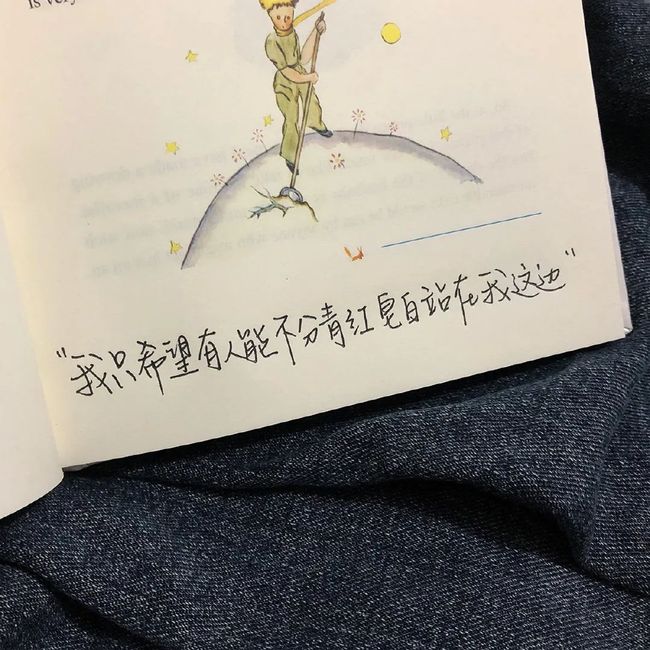 is very
"我只希望有人能不分青红皂白站在我这边"